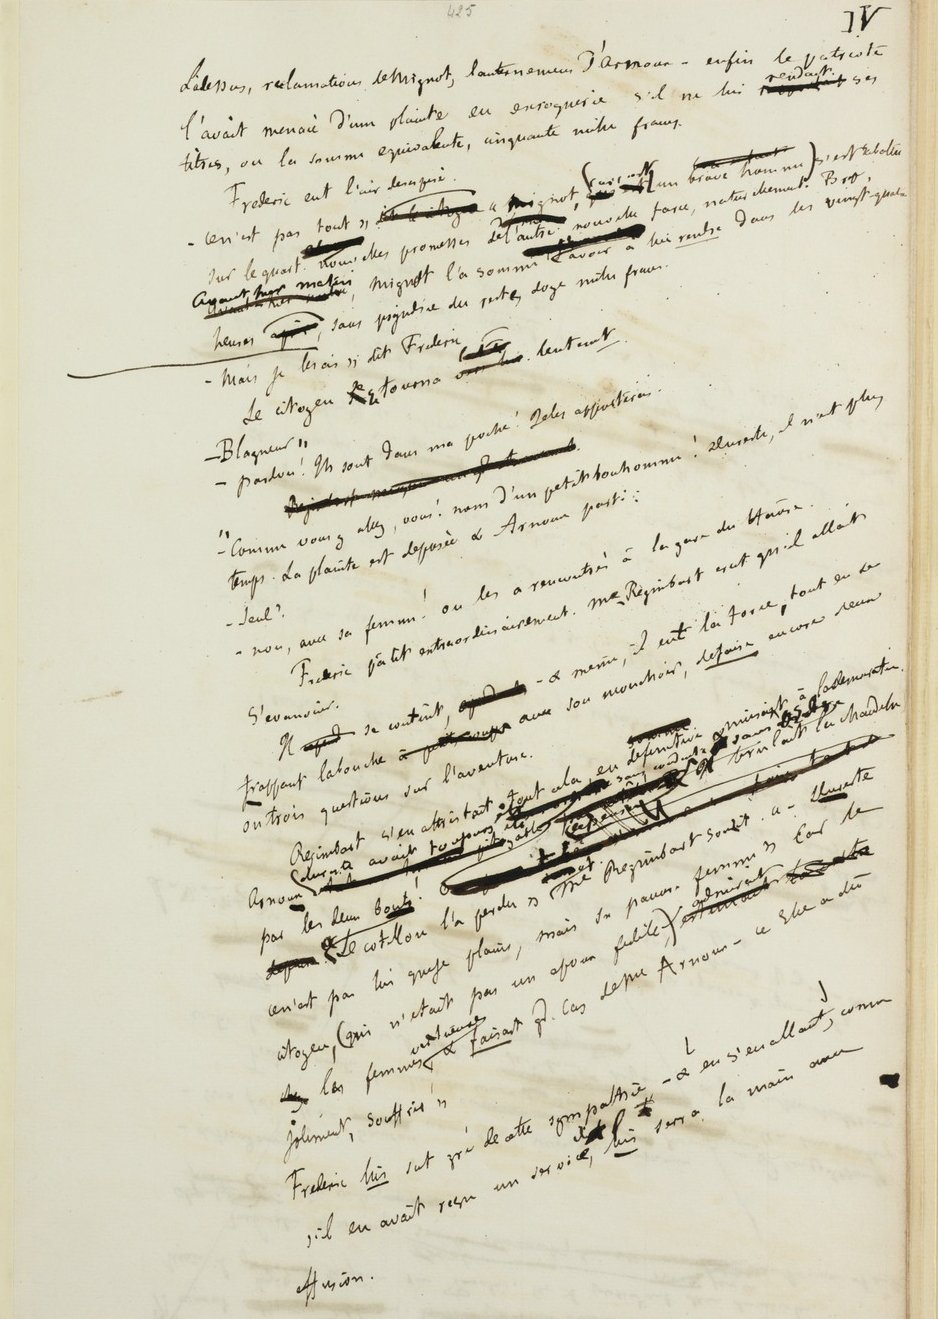 425
IV
Làdessus, reclamations de Mignot, lanternement d'Arnoux - enfin le patriote
l'avait menacé d'une plainte en escroquerie s'il ne lui rendait ses
titres, ou la somme equivalente, cinquante mille francs.
Frederic eut l'air desespéré.
- ce n'est pas tout » à Mignot, un brave homme) s'est rabattu
sur le quart. nouvelles promesses de l'autre. nouvelle farce, naturellement. Bref,
avant hier matin, Mignot l'a sommé d'avoir à lui rendre dans les vingt-quatre
heures, sans préjudice du reste, doze mille francs.
- Mais je les ai » dit Frederic
Le citoyen se retourna lentement.
- Blagueur"
- pardon! Ils sont dans ma poche! Je les apportais.
"- Comme vous y allez, vous! nom d'un petit bonhomme! Du reste, il n'est plus
temps. La plainte est déposée & Arnoux parti.
- Seul?
- non, avec sa femme! on les a rencontrés à la gare du Hâvre.
Frederic pâlit extraordinairement. Me Regimbart crut qu'il allait
S'évanouir.
Il se contint, - & même, il eut la force, tout en se
frappant la bouche avec son mouchoir, de faire encore deux
ou trois questions sur l'aventure.
Regimbart s'en attristait tout cela en définitive nuisant à la démocratie.
Arnoux avait toujours été sans conduite & sans ordre
Il brulait la chandelle
par les deux bouts!
Le cotillon l'a perdu » Me Regimbart sourit. - Du reste
ce n'est pas lui que je plains, mais sa pauvre femme » Car le
citoyen, (qui n'était pas un époux fidèle,) admirait
les femmes vertueuses & faisait gd. cas de Me Arnoux - « Elle a dû
joliment, souffrir »
Frederic lui sut gré de cette sympathie - & en s'en allant, comme
s'il en avait reçu un service, lui serra la main avec
effusion.